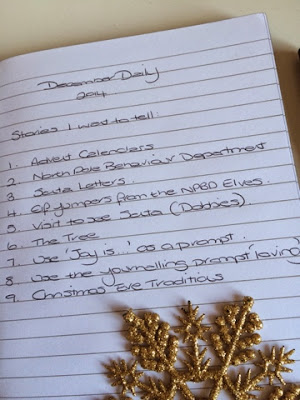 December Daily
2014
Stories I want to tell:
1. Advent Calendars
2 North Pole Behaviour Department
3 Santa Letters.
4. Elf jumpers from the NPBD Elves.
5 Visit to see Santa (Dobbies).
6. The Tree
7 Use 'Joy is...' as a prompt.
8 Use the journalling prompt 'loving
9 Christmas Eve Traditions